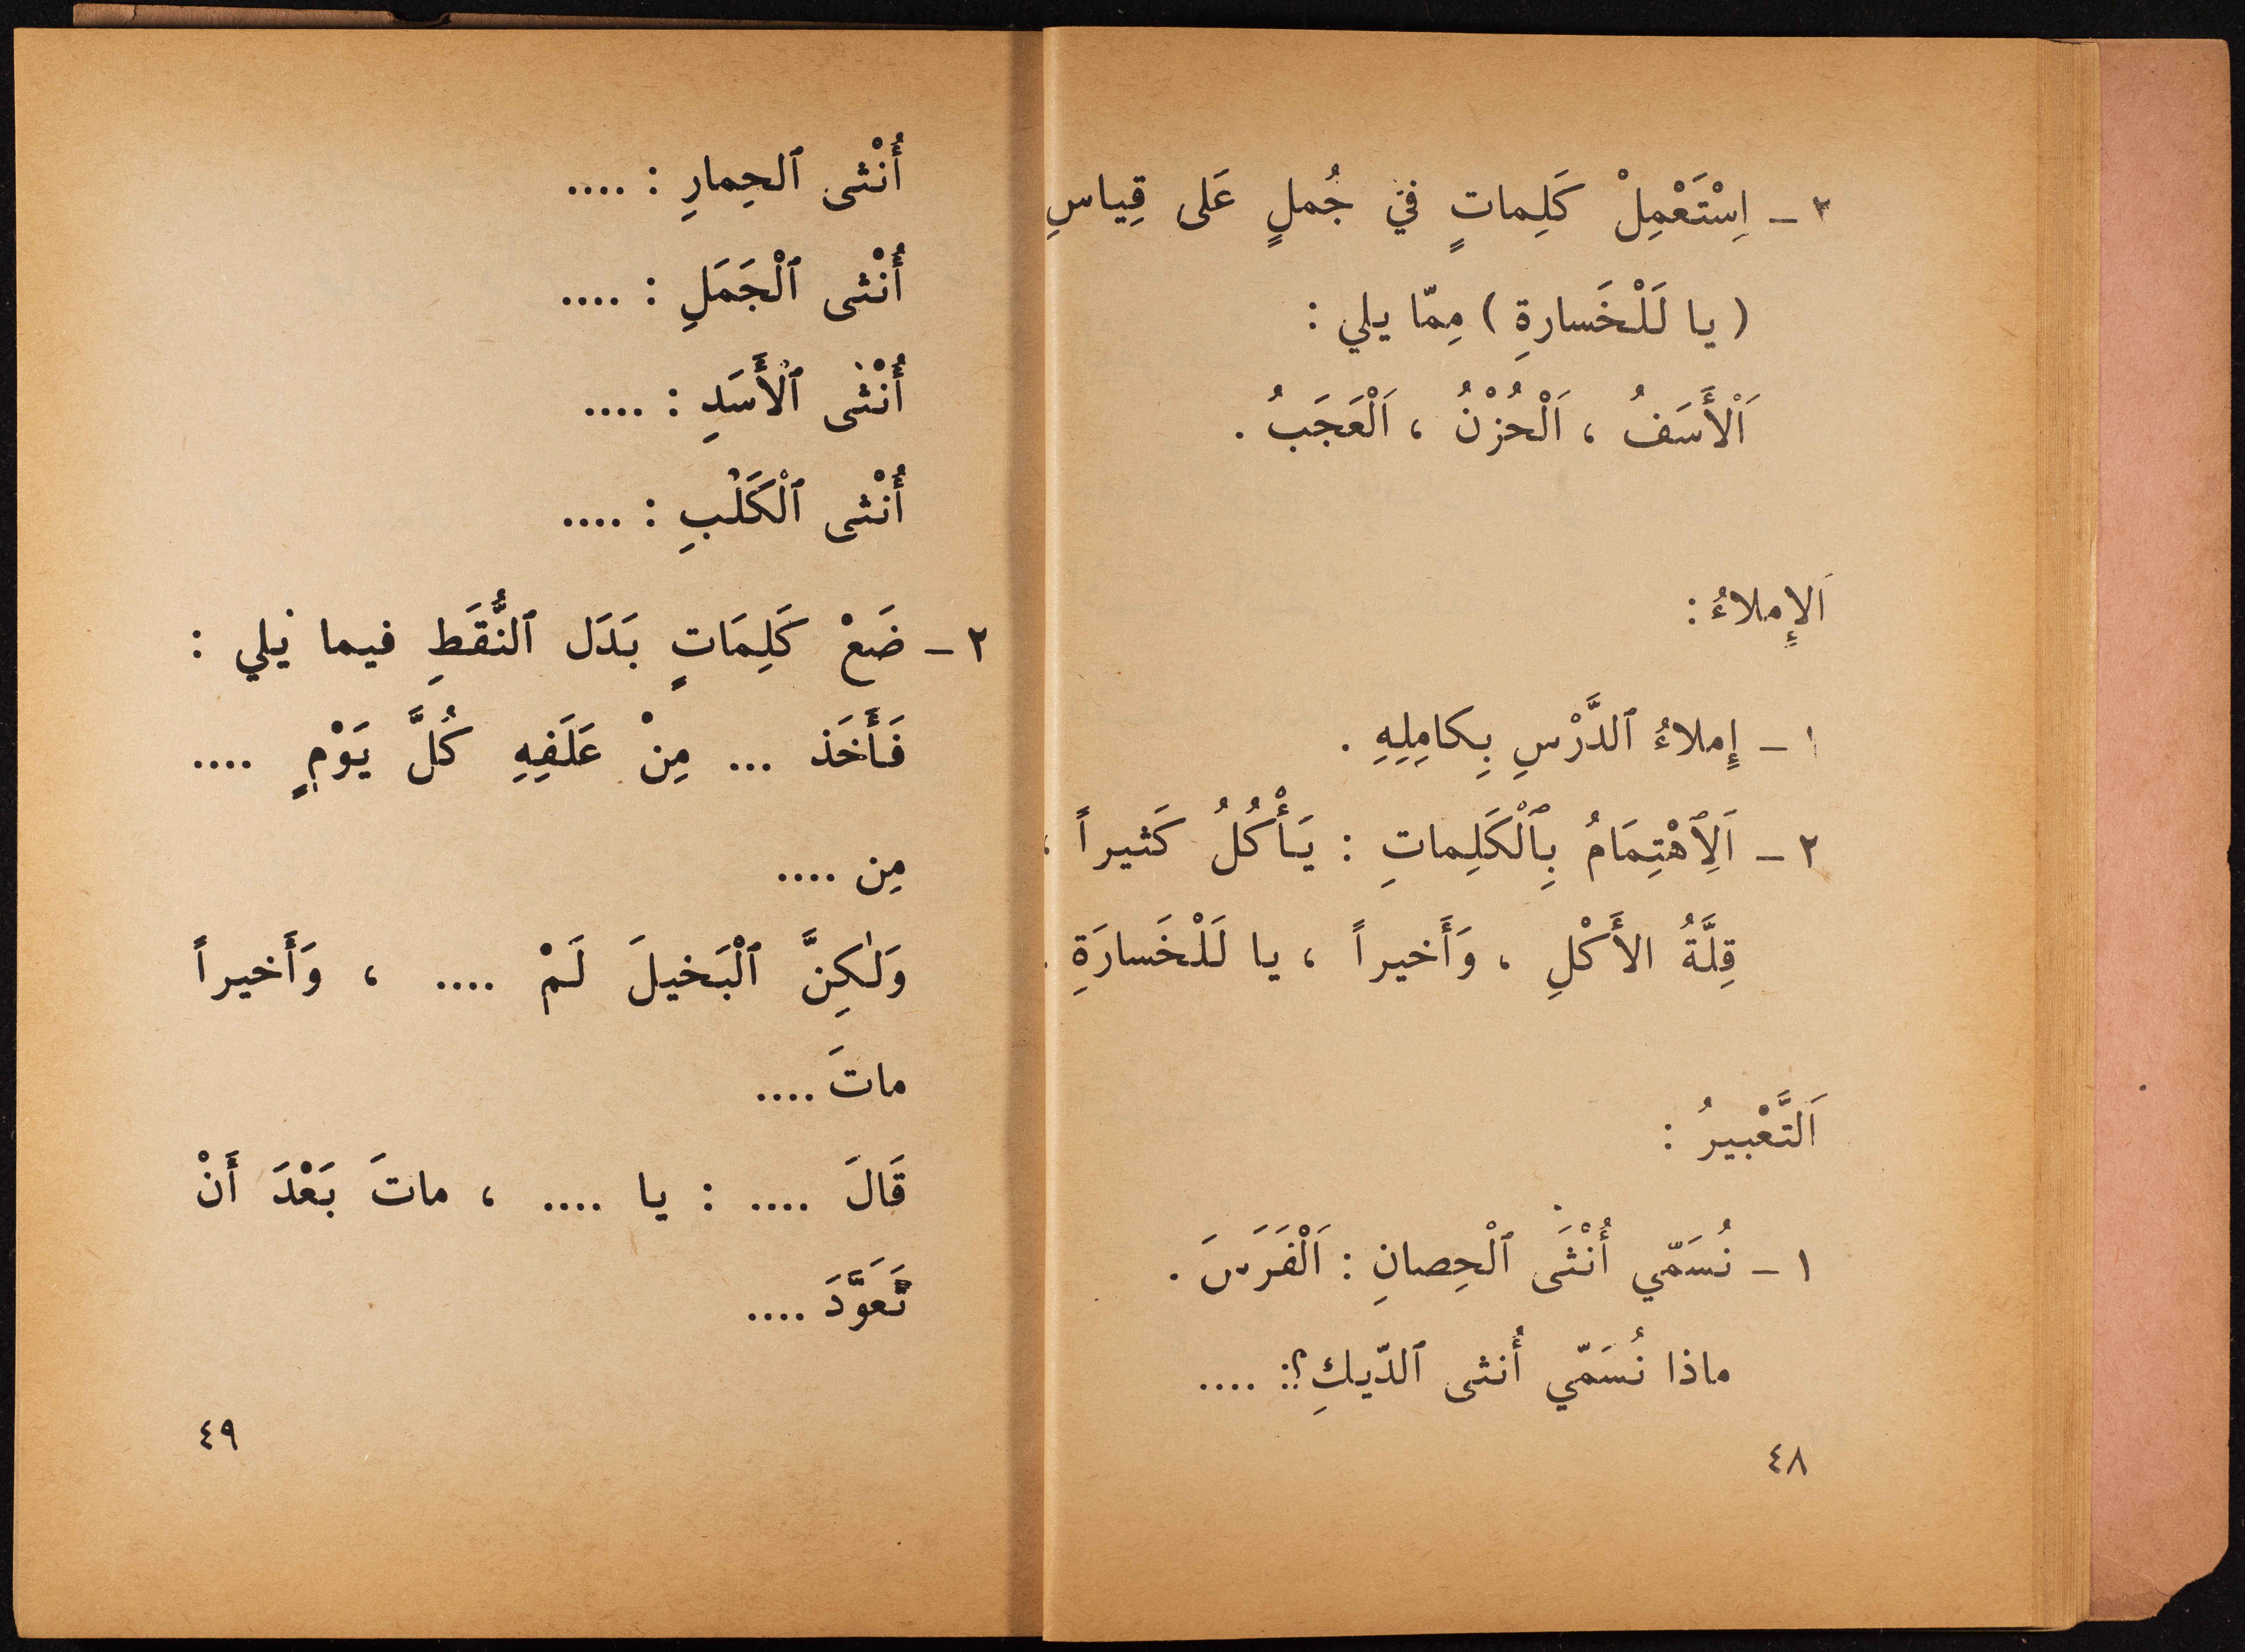 ٢ – اِسْتَعْمِلْ كَلِماتٍ في جُملٍ عَلى قِياسِ
( يا لَلْخَسارةِ ) مِمّا يلي :
اَلْأَسَفُ ، اَلْحُزْنُ ، اَلْعَجَبُ .
اَلإِملاءُ :
١ – إِملاءُ ٱلدَّرْسِ بِكامِلِهِ .
٢ – اَلِٱهْتِمَامُ بِٱلْكَلِماتِ : يَأْكُلُ كَثيراً ،
قِلَّةُ الأَكْلِ ، وَأَخيراً ، يا لَلْخَسارَةِ .
اَلتَّعْبيرُ :
١ – نُسَمّي أُنْثَى ٱلْحِصانِ : اَلْفَرَسَ .
ماذا نُسَمّي أُنثى ٱلدّيكِ؟: ....
٤٨
أُنْثى ٱلحِمارِ : ....
أُنْثى ٱلْجَمَلِ : ....
أُنْثى ٱلْأَسَدِ : ....
أُنْثى ٱلْكَلْبِ : ....
٢ – ضَعْ كَلِمَاتٍ بَدَل ٱلنُّقَطِ فيما يلي :
فَأَخَذ ... مِنْ عَلَفِهِ كُلَّ يَوْمٍ ....
مِن ....
وَلٰكِنَّ ٱلْبَخيلَ لَمْ .... ، وَأَخيراً
ماتَ ....
قَالَ .... : يا .... ، ماتَ بَعْدَ أَنْ
تَعَوَّدَ ....
٤٩